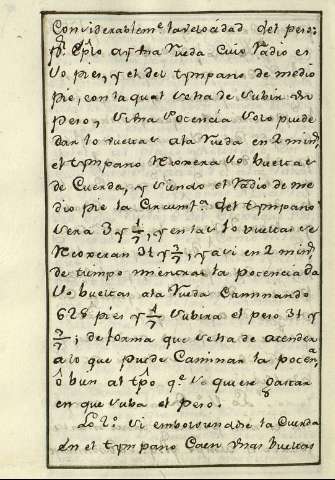 Considerablem.e la velocidad del peso:
p.r Exp.lo ay vna Rueda Cuio Radio es
10 pies, y el del tympano de medio
pie, con la qual se ha de subir vn
peso, si vna Potencia solo puede
dar 10 vueltas a la Rueda en 2 min.s
el tympano Recoxera 10 bueltas
de Cuerda, y siendo el Radio de me
dio pie la Circumf.a del tympano
sera 3 y 1/7, y en las 10 vueltas se
Recoxeran 31 y 3/7, y asi en 2 min.s
de tiempo mientras la potencia da
10 bueltas a la Rueda Caminando
628 pies y 4/7 subira el peso 31 y
3/7; de forma que se ha de atender
a lo que puede Caminar la poten.a
ô bien al tpô q.e se quiere gastar
en que suba el peso.
Lo 2.o si emboluiendose la Cuerda
en el tympano Caen vnas bueltas